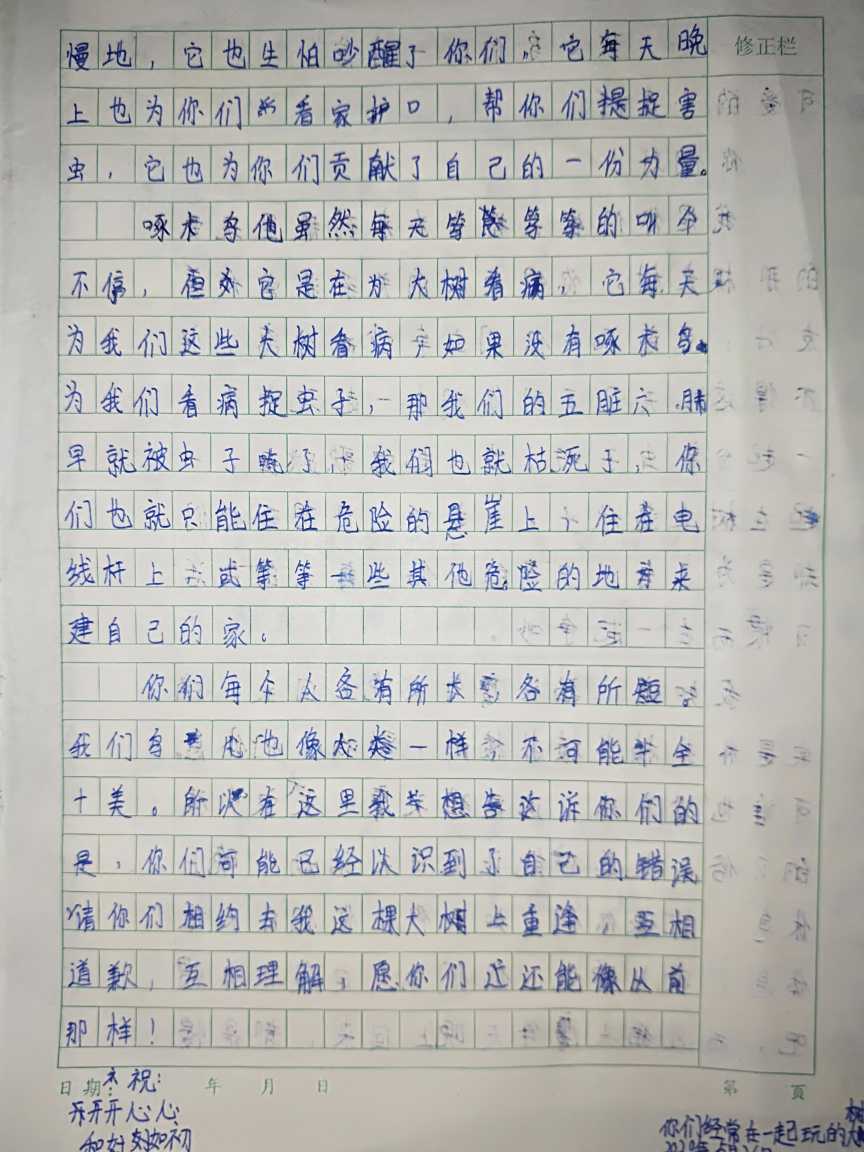 慢地，它也生怕吵醒了你们。它每天晚
修正栏
上也为你们看家护口，帮你们捉害
虫，它也为你们贡献了自己的一份力量。
啄木鸟他虽然每天等等等的叫个
不停，但它是在为大树看病，它每天
为我们这些大树看病，如果没有啄木鸟
为我们看病捉虫子，那我们的五脏六肺
早就被虫子了，我们也就枯死了，你
们也就只能住在危险的悬崖上，住在电
线杆上或等等一些其他危险的地方来
建自己的家。
你们每个人各有所长，各有所短
我们鸟也像人类一样，不可能半全
十美。所以在这里我想告诉你们的
是，你们可能已经认识到了自己的错误
请你们相约去我这棵大树上重逢，互相
道歉，互相理解，愿你们还能像从前
那样！
日期： 年 月 日 第 頁
祝：
开开心心
和好如初
你们经常在一起玩的大树